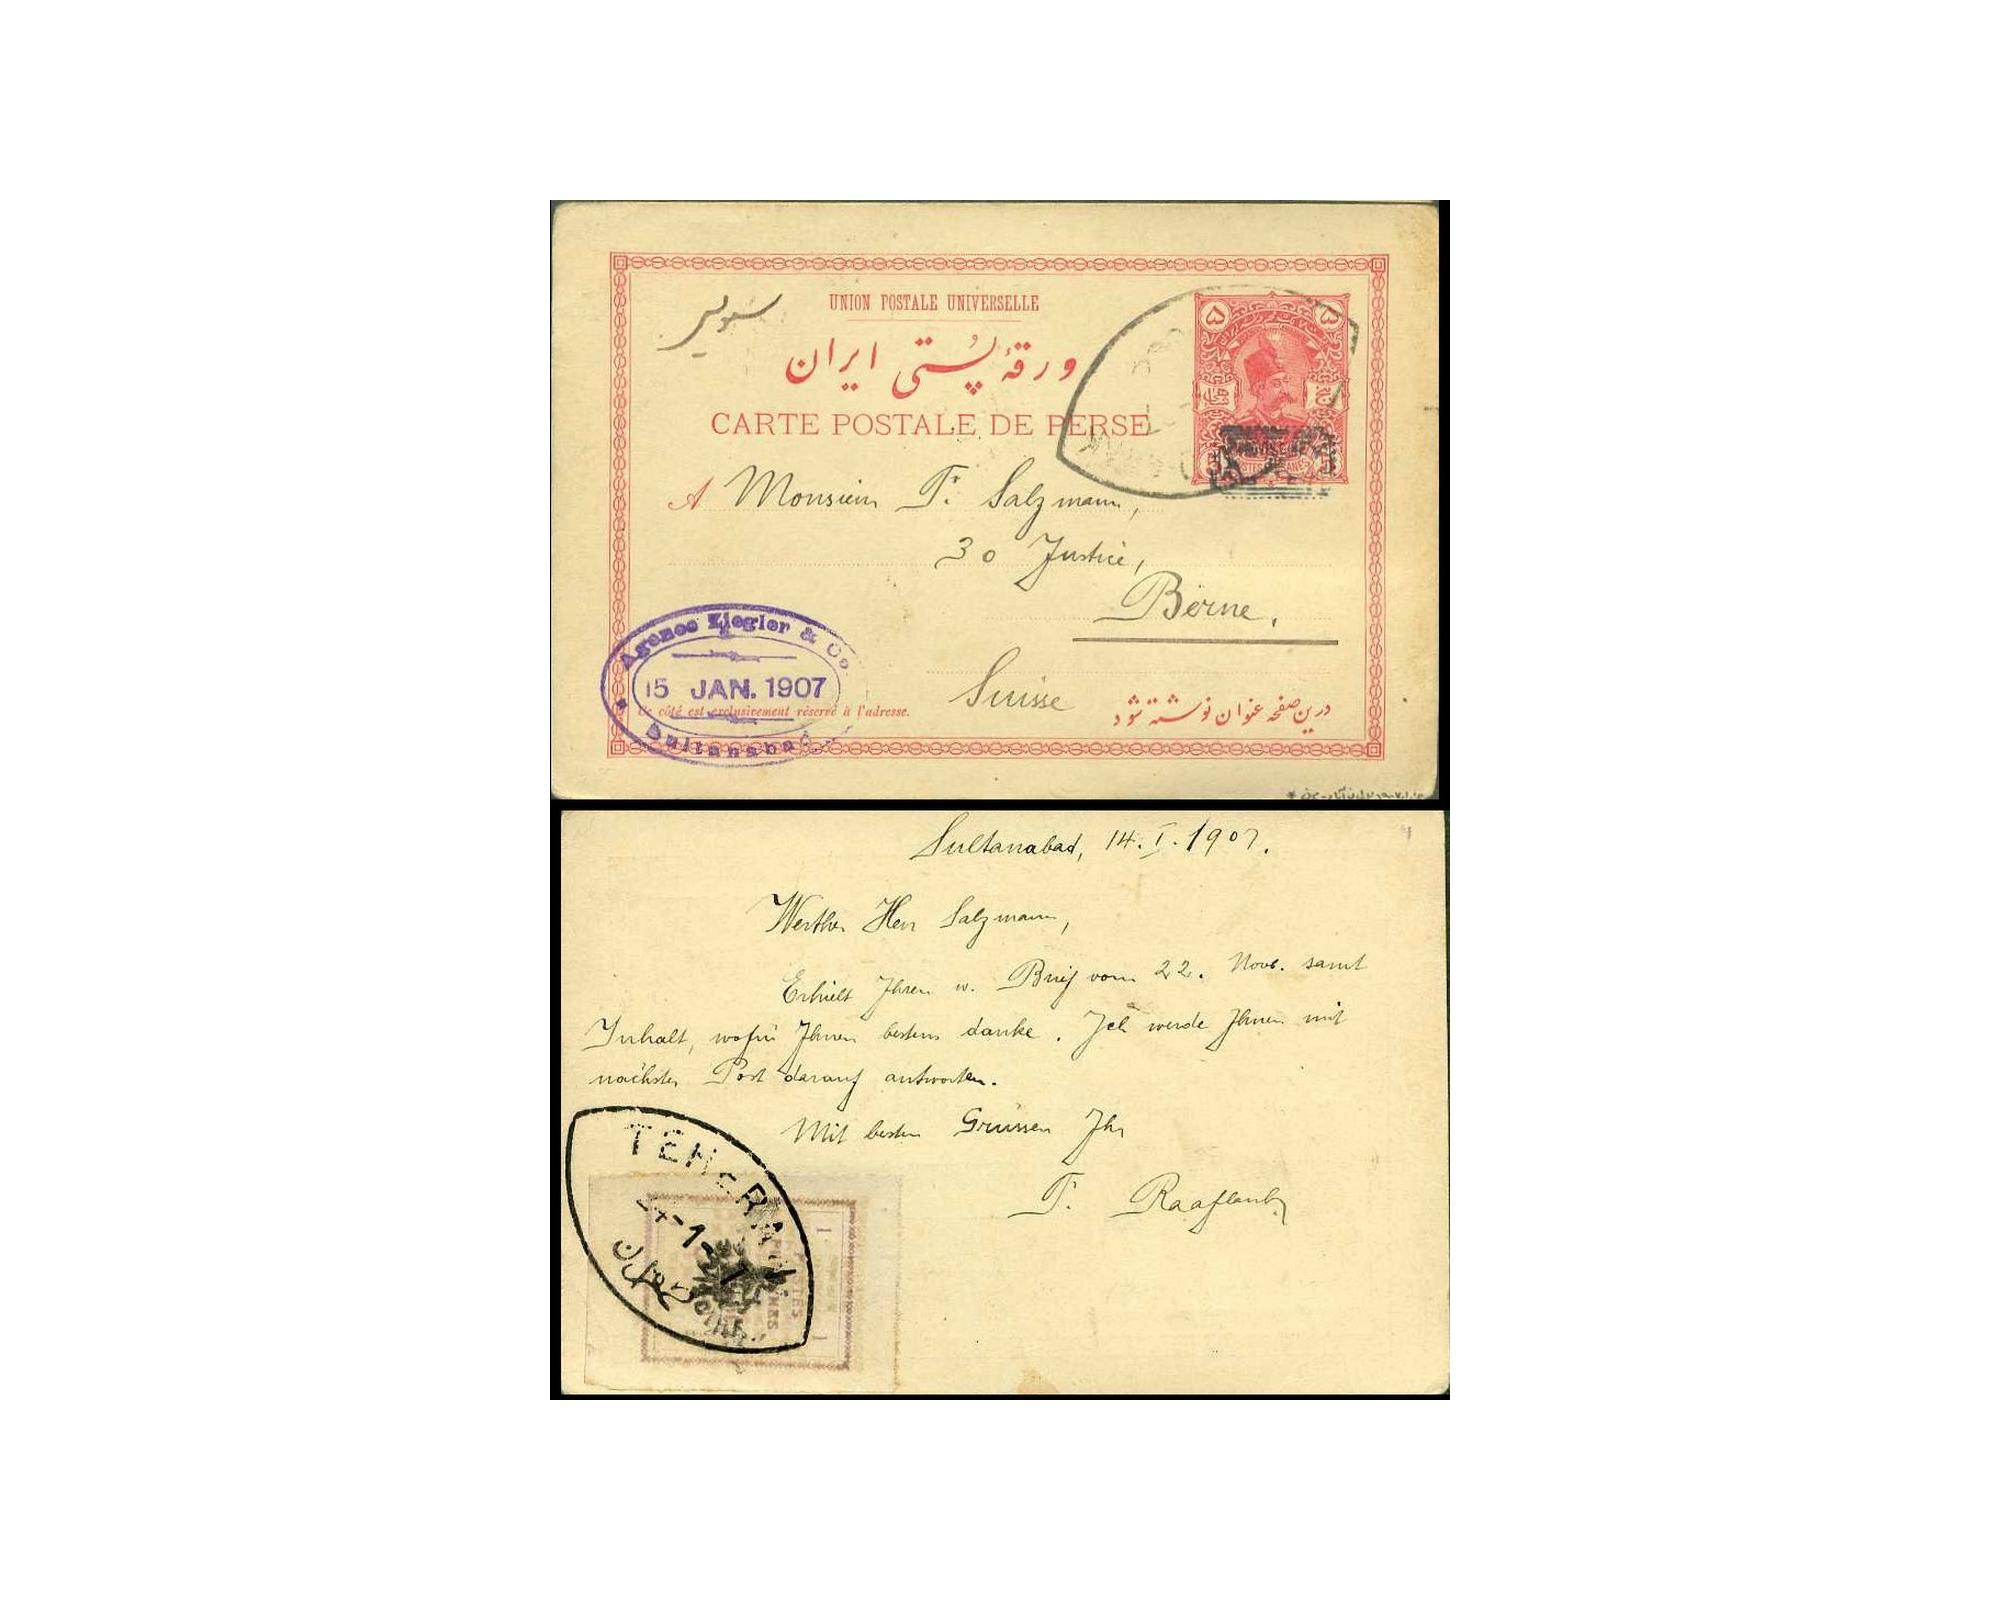 UNION POSTALE UNIVERSELLE
سويس
ورقهٔ پُستی ایران
CARTE POSTALE DE PERSE
۵ ۵
A Monsieur F. Salzmann,
30 Justice,
Berne,
Suisse
Agence Ziegler & Co.
15 JAN. 1907
Sultanabad
Ce côté est exclusivement réservé à l'adresse.
درین صفحه عنوان نوشته شود
Sultanabad, 14. I. 1907.
Werther Herr Salzmann,
Erhielt Ihren w. Brief vom 22. Nov. samt
Inhalt, wofür Ihnen bestens danke. Ich werde Ihnen mit
nächster Post darauf antworten.
Mit besten Grüssen Ihr
F. Raaflaub
TEHERAN
24-1-7
POSTES
1
1